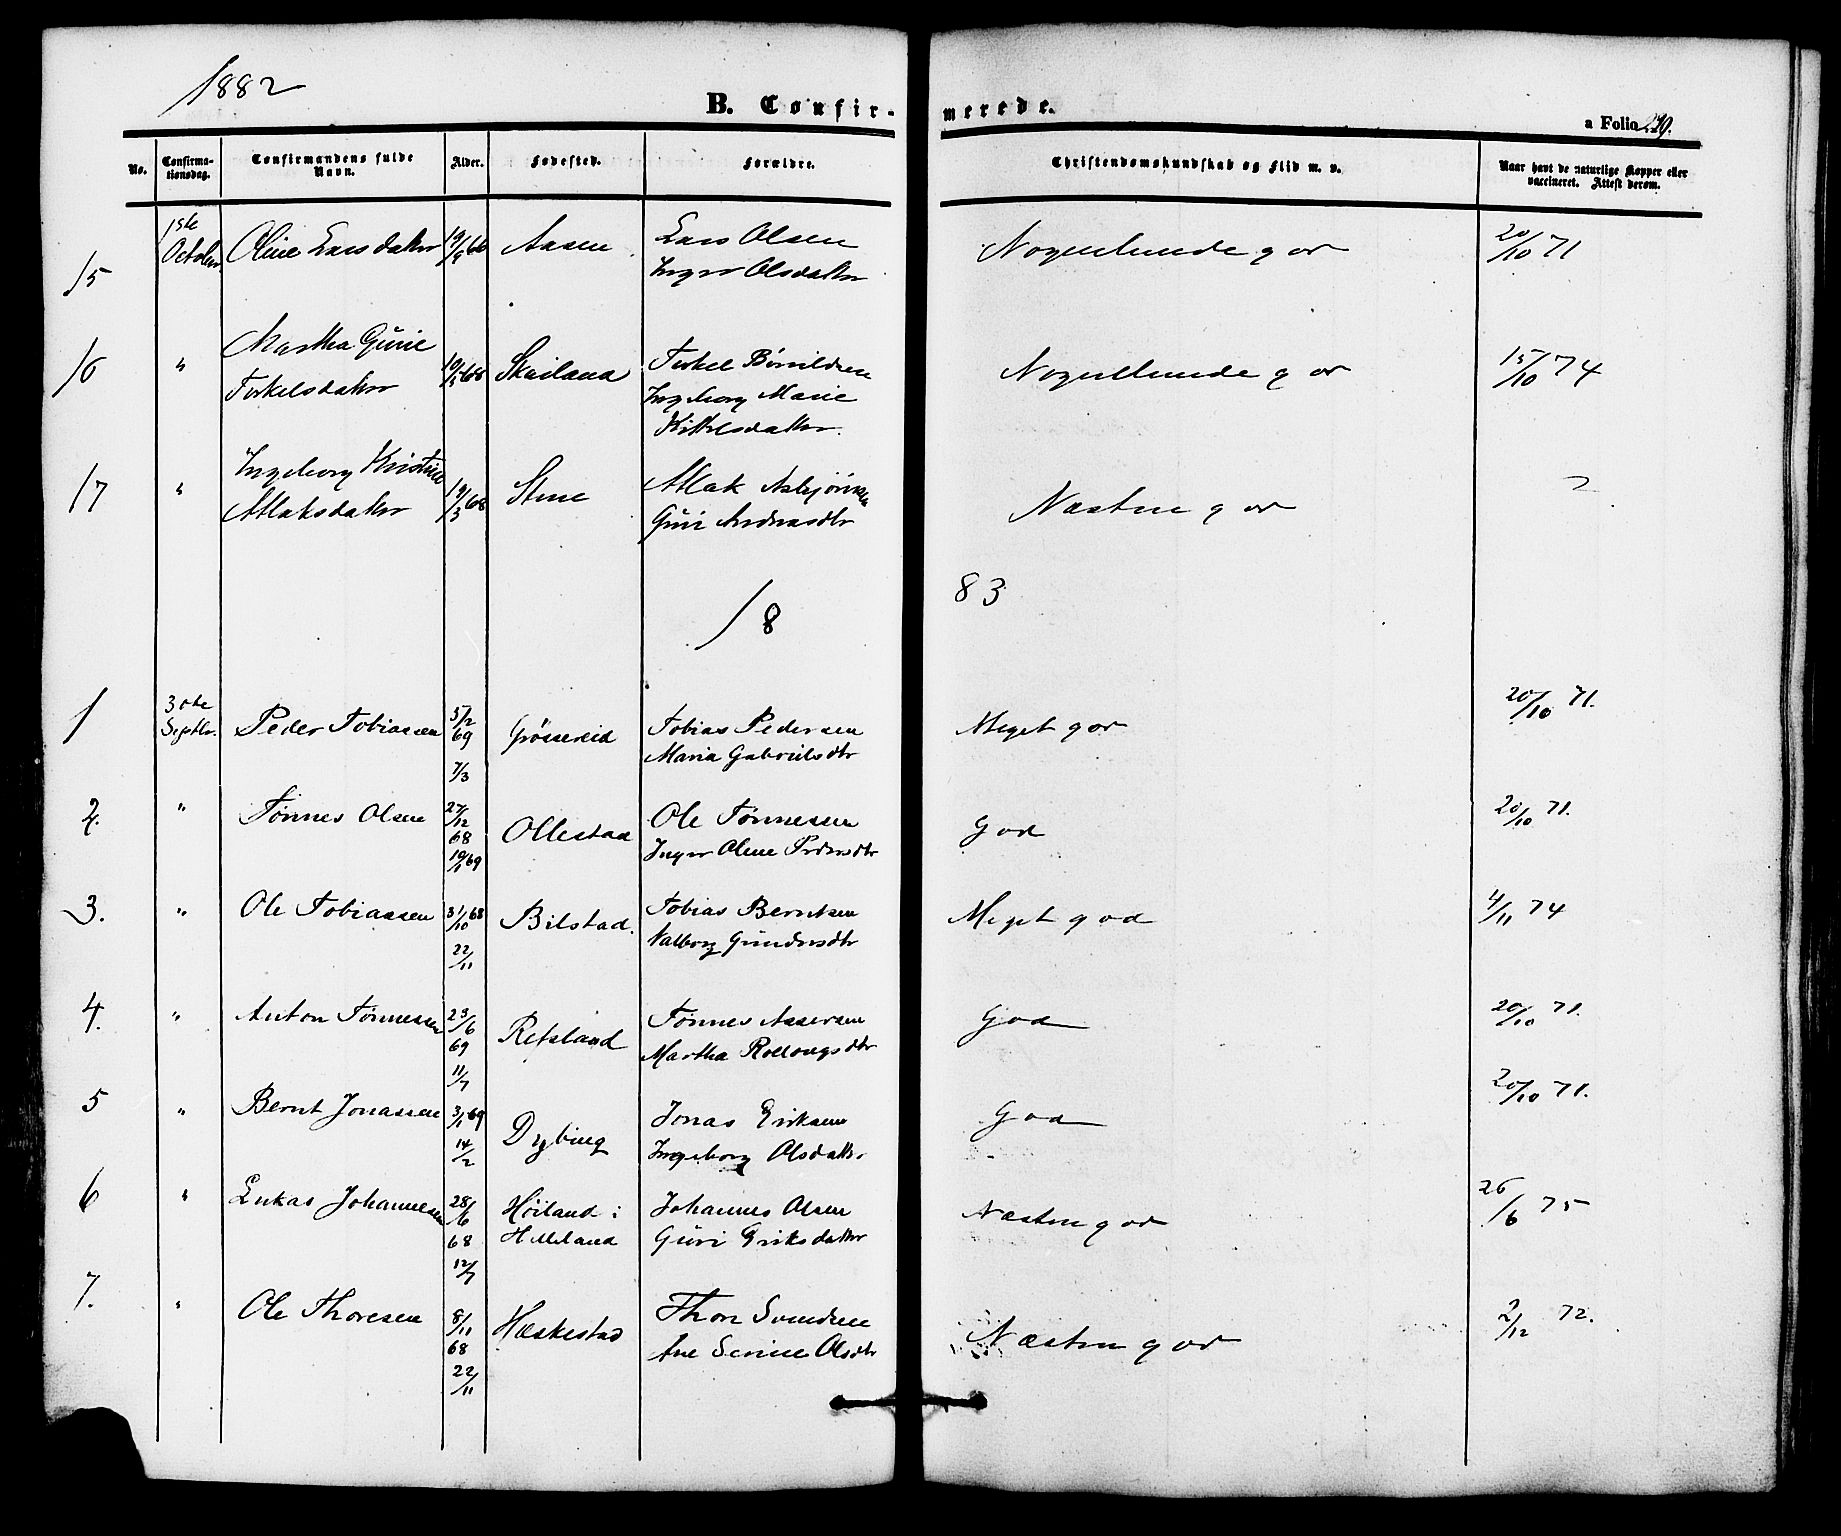 1882
B. Confir-
merede.
a Folio 219.
No.
Confirma-
tionsdag.
Confirmandens fulde
Navn.
Alder.
Fødested.
Forældre.
Christendomskundskab og Flid m. v.
Naar havt de naturlige Kopper eller
vaccineret. Attest derom.
15 1ste October Oline Larsdatter Aasen Lars Olsen Nogenlunde god 20/10 71
Inger Olsdatter
16 " Martha Gurie Skailand Torkel Nogenlunde god 15/10 74
Torkelsdatter Ingeborg Marie
Kittelsdatter.
17 " Ingeborg Kristine Stene Atlak Asbjörnsen Næsten god
Atlaksdatter Guri Andreasdtr
18 83
1 30te Septbr. Peder Tobiassen 5/2 69 7/3 Grøssereid Tobias Pedersen Meget god 20/10 71.
Maria Gabrielsdtr
2. " Tønnes Olsen 27/12 68 Ollestad Ole Tønnesen God 20/10 71.
Inger Oline Pedersdtr
3. " Ole Tobiassen 31/10 68 22/11 Bilstad. Tobias Berntsen Meget god 4/11 74
Valborg Gundersdtr
4. " Anton Tønnessen 23/6 69 11/7 Refsland Tønnes Assersen God 20/10 71.
Martha
5 " Bernt Jonassen 3/1 69 14/2 Dybing Jonas Eriksen God 20/10 71.
Ingeborg Olsdatter
6 " Lukas Johannesen 28/6 68 12/7 Høiland i Johannes Olsen Næsten god 26/6 75
Helleland Guri Eriksdatter
7. " Ole Thoresen 8/11 68 22/11 Hæskestad Thore Svendsen Næsten god 2/12 72.
Ane Serine Olsdtr